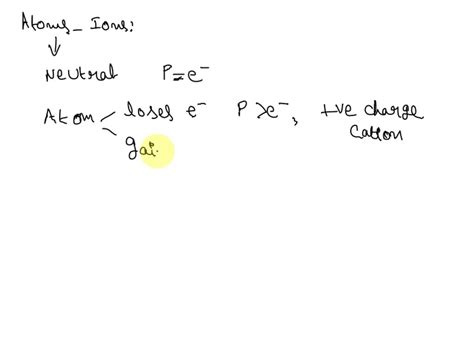 Atoms - Ions:
Neutral P = e⁻
Atom loses e⁻ P > e⁻, +ve charge
Cation
gai